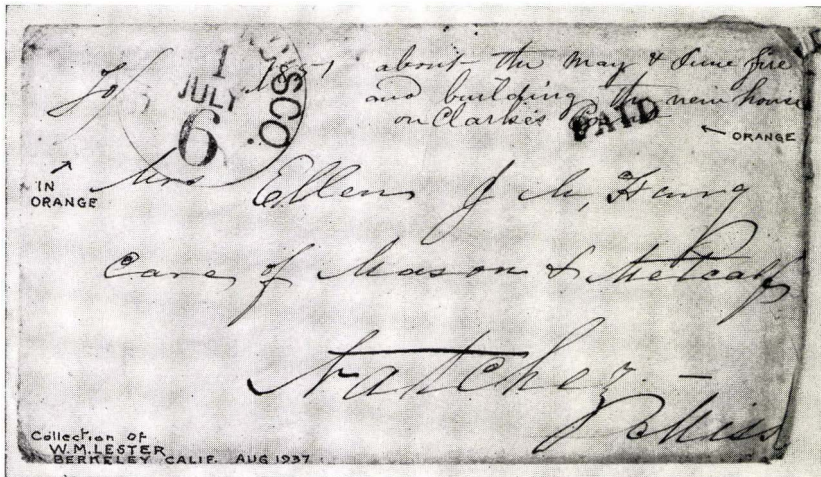 To
1 JULY 6
SCO.
1851 about the May & June fire
and building the new house
on Clarke's
PAID
← ORANGE
IN
ORANGE
Mrs Ellen J Mc
Care of Mason & Metcalf
Natchez —
Miss
Collection of
W.M. LESTER
BERKELEY CALIF. AUG 1937